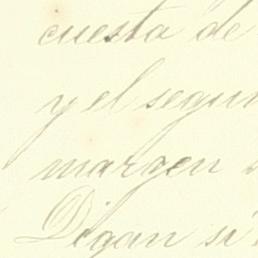 cuesta de
y el segun
margen
Digan si